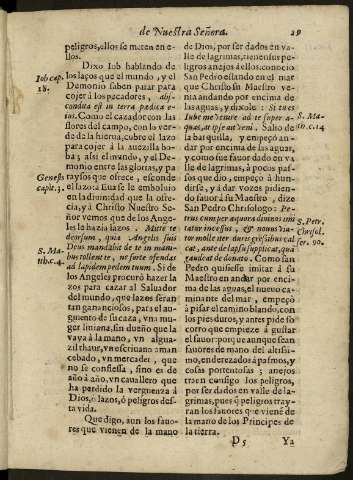 de Nuestra Señora. 29
peligros, ellos se meten en e-
llos.
Dixo Iob hablando de
los laços que el mundo, y el
Demonio saben parar para
cojer à los pecadores, abs-
condita est in terra pedica e-
ius. Como el cazador con las
flores del campo, con lo ver-
de de la hierua, cubre el lazo
para cojer à la auezilla bo-
ba; assi el mundo, y el De-
monio entre las glorias, y pa
raysos que ofrece, esconde
el lazo: a Eua se le embolujo
en la diuinidad que la ofre-
cia, y à Christo Nuestro Se-
ñor vemos que de los Ange-
les le hazia lazos. Mitte te
deorsum, quia Angelis suis
Deus mandabit de te in manu-
bus tollent te, ne forte offendas
ad lapidem pedem tuum. Si de
los Angeles procurò hazer la
zos para cazar al Saluador
del mundo, que lazos seran
tan gananciosos, para el au-
gmento de su caza, vna mu-
ger liuiana, sin dueño que la
vaya à la mano, vn algua-
zil thaur, vn escriuano aman
cebado, vn mercader, que
no se confiessa, sino es de
año à año, vn cauallero que
ha perdido la verguenza à
Dios, ò lazos, ò peligros des-
ta vida.
Que digo, aun los fauo-
res que vienen de la mano
Iob cap.
18.
Genesis
capit. 3.
S. Ma-
tth. c. 4.
de Dios, por ser dados en va-
lle de lagrimas, tienen sus pe-
ligros anejos à ellos. conocio
San Pedro estando en el mar
que Christo su Maestro ve-
nia andando por encima de
las aguas, y dixole: Si tu es
Iube me venire ad te super a-
quas, at ipse ait veni. Salto de
la barquilla, y empeçò an-
dar por encima de las aguas,
y como fue fauor dado en va
lle de lagrimas, à pocos pas-
sos que dio, empeçò à hun-
dirse, y à dar vozes pidien-
do fauor à su Maestro, dize
San Pedro Chrisologo: Pe-
trus cum per aquora diuinos imi
tatur incessus, & nouus via-
tor molle iter duris gressibus cal
cat, ante de lapsu supplicat, qua
gaudeat de donato. Como san
Pedro quisiesse imitar à su
Maestro en andar por enci-
ma de las aguas, el nueuo ca-
minante del mar, empeçò
à pisar el camino blando, con
los pies duros, y antes pide so
corro que empieze à gustar
el fauor: porque aunque sean
fauores de mano del altissi-
mo, enderezados à pasmos, y
cosas portentosas; anejos
traen consigo los peligros,
por ser dados en valle de la-
grimas, pues q̃ peligros tray-
ran los fauores que vienẽ de
la mano de los Principes de
la tierra.
S. Ma-
th. c. 14
S. Petr.
Chrisol.
ser. 90.
P 5 Ya